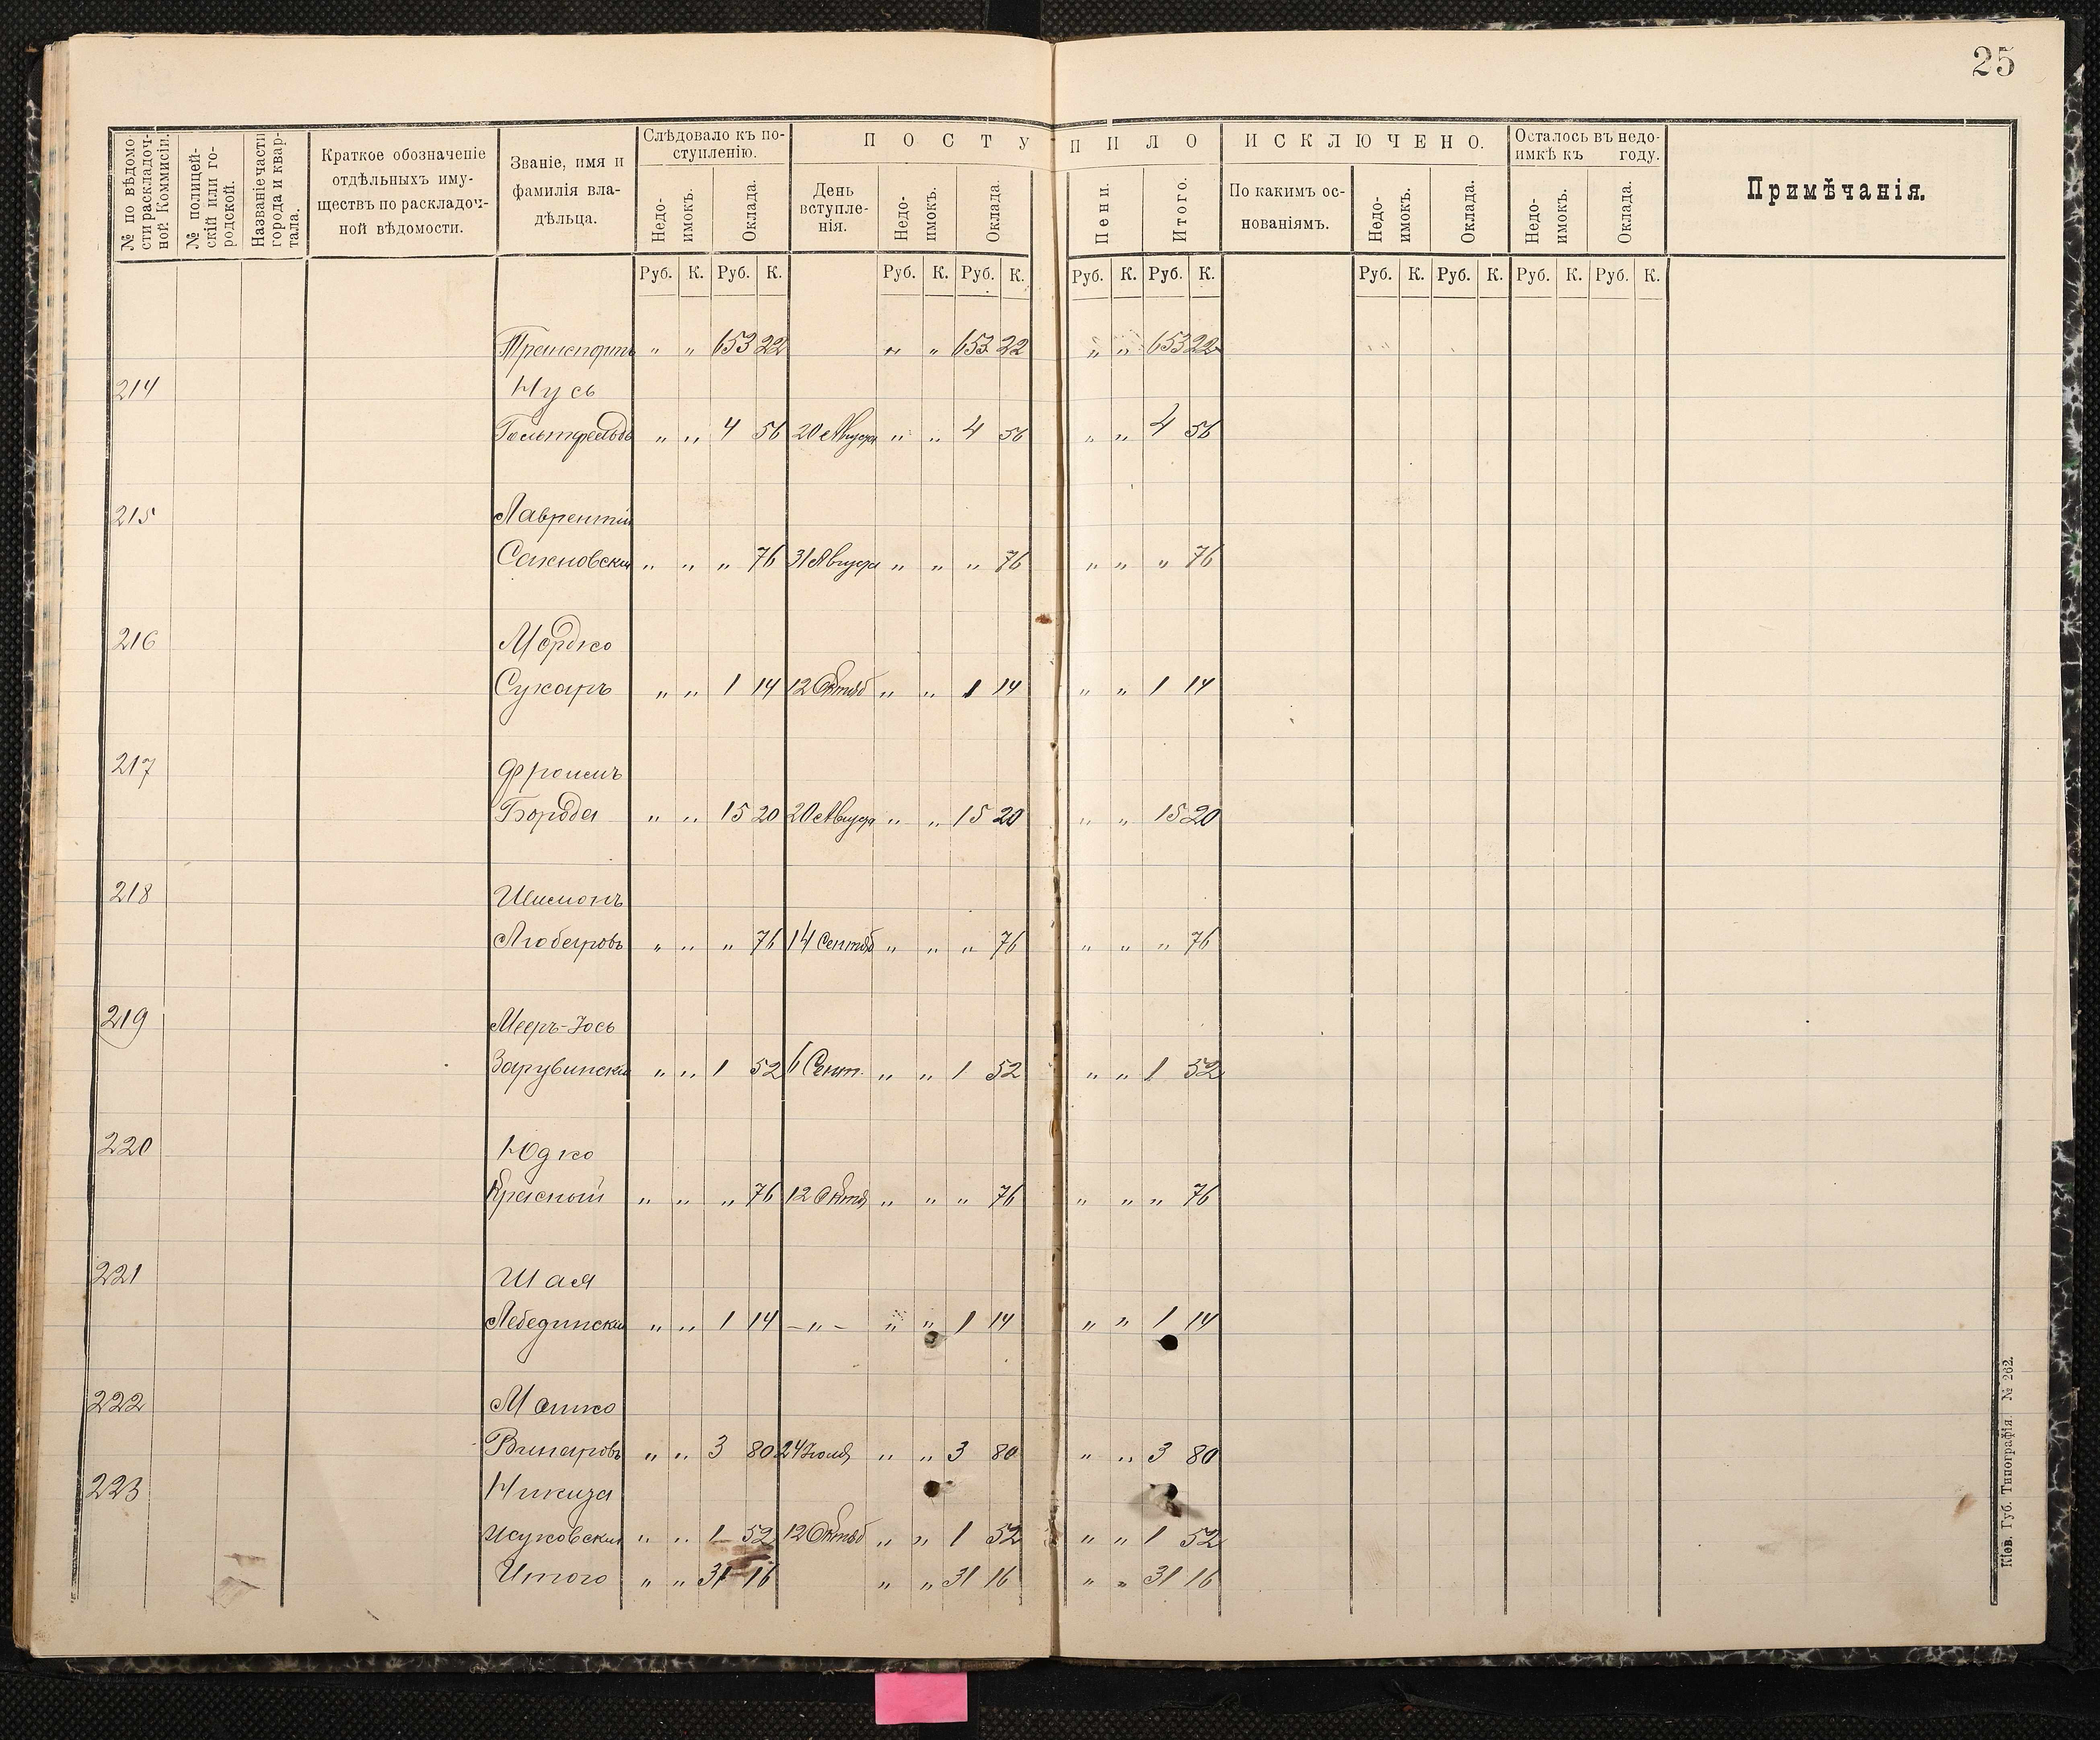 25
№ по вѣдомости раскладочной Коммисіи.
№ полицейскій или городской.
Названіе части города и квартала.
Краткое обозначеніе отдѣльныхъ имуществъ по раскладочной вѣдомости.
Званіе, имя и фамилія владѣльца.
Слѣдовало къ поступленію.
ПОСТУПИЛО
ИСКЛЮЧЕНО.
Осталось въ недоимкѣ къ году.
Примѣчанія.
Недоимокъ. Оклада. День вступленія. Недоимокъ. Оклада. Пени. Итого. По какимъ основаніямъ. Недоимокъ. Оклада. Недоимокъ. Оклада.
Руб. К. Руб. К. Руб. К. Руб. К. Руб. К. Руб. К. Руб. К. Руб. К. Руб. К. Руб. К.
Транспортъ " " 653 22 " " 653 22 " " 653 22
214 Нусь
" " 4 56 20 Августа " " 4 56 " " 4 56
215 Лаврентій
Сахновскій " " " 76 31 Августа " " " 76 " " " 76
216 Мордко
Сухаръ " " 1 14 12 Октяб " " 1 14 " " 1 14
217 Фроимъ
Борода " " 15 20 20 Августа " " 15 20 " " 15 20
218 Шимонъ
Любаровъ " " " 76 14 Сентяб " " " 76 " " " 76
219 Мееръ-Іось
Зарувинскій " " 1 52 6 Сент. " " 1 52 " " 1 52
220 Юдко
Красный " " " 76 12 Октя " " " 76 " " " 76
221 Шая
Лебединскій " " 1 14 -"- " " 1 14 " " 1 14
222 Мошко
Винаровъ " " 3 80 24 Іюля " " 3 80 " " 3 80
223
" " 1 52 12 Октяб " " 1 52 " " 1 52
Итого " " 31 16 " " 31 16 " " 31 16
Кіев. Губ. Типографія. № 262.